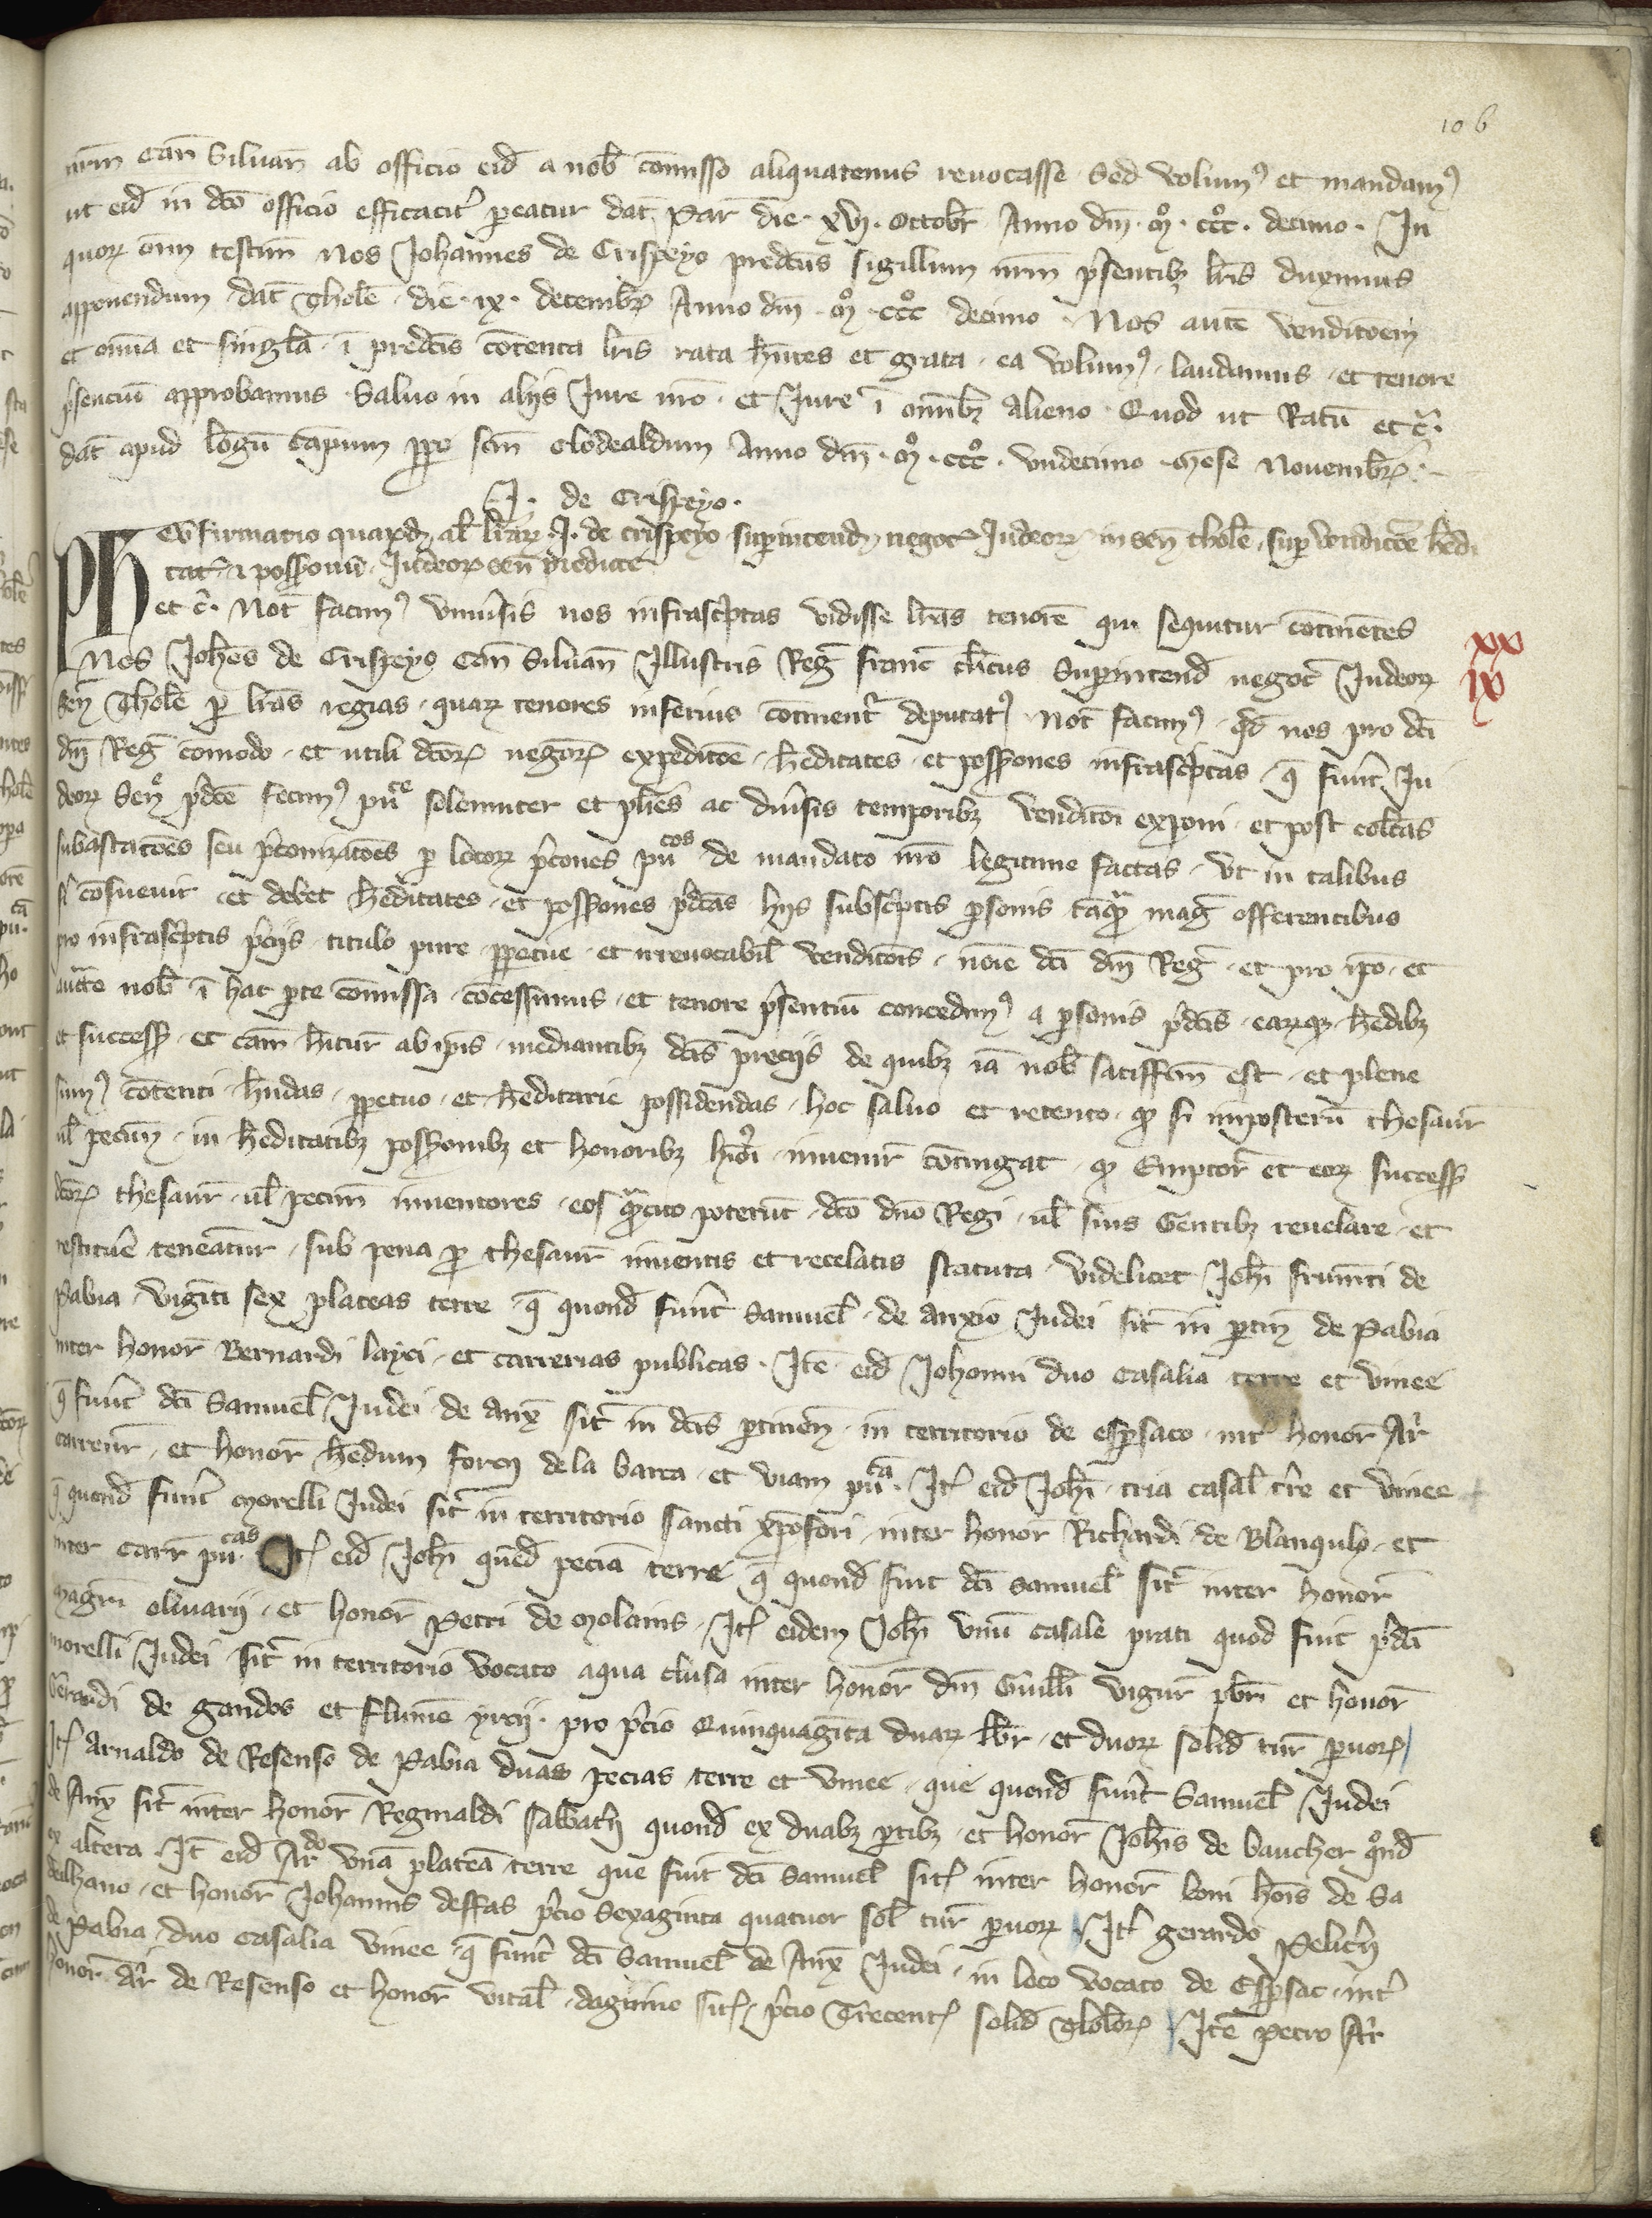 106
nr̄m Can̄ Siluan̄ ab officio eid̄ a nob̄ cōmisso aliquatenus reuocasse Sed volumꝰ et mandamꝰ
ut eid̄ in dc̄o officio efficacit̉ pareatur dat̄ Par̄ die · xvj · Octobr̄ Anno dm̄ · mͦ · cccͦ · decimo · In
quoꝝ om̄m testim̄ Nos Johannes de Crispeyo predc̄us sigillum nr̄m p̉sentibꝫ lr̄is duximus
apponendum dat̄ Thole̅ · die · ix · decembr̄ Anno dm̄ · mͦ · cccͦ decimo · Nos aute̅ vendic̄oem
et om̄ia et singl̄a · i̅ predc̄is co̅tenta lr̄is rata hn̄tes et grata · ea volumꝰ · laudamus · et tenore
p̉senciu̅ approbamus · Saluo in alijs Jure nr̄o · et Jure i̅ om̄ibꝫ alieno · Quod ut Ratu̅ et c̉·
dat̄ apud lo̅gu̅ ca̅pum ꝓpe sc̄m Clodoaldum Anno dm̄ · mͦ · cccͦ · vndecimo · me̅se Nouembr̄ ·
J · de Crispeyo ·
Co̅firmatio quarūdꝫ al̄ lr̄aꝝ J · de crispeyo suꝑintend̄ negoc̄ Judeoꝝ in sen̄ thole̅ · suꝑ vendic̄o̅e hedi
tat̄ · ⁊ possoniu̅ · Judeoꝝ sen̄ predicte
Ph et c̉ · Not̄ facimꝰ vniủsis nos infrasc̉ptas vidisse lr̄as tenore̅ qui sequitur co̅tine̅tes
Nos Joh̄es de Crispeyo Can̄ Siluan̄ Illustris Reg̅ franc̄ cl̄icus Suꝑintend̄ negoc̄ Judeoꝝ
xx
ix
Sen̄ Thole̅ ꝑ lr̄as regias · quaꝝ tenores inferius co̅tinent̉ deputatꝰ · Not̄ facimꝰ · qd̄ nos pro dc̄i
dn̄i Reg̅ co̅modo · et utili dc̄oꝝ nego̅ꝝ expedic̄o̅e · h̄editates · et possones infrasc̉ptas · q̅ fuer̄t Ju
deoꝝ Sen̄ p̉dc̄e fecimꝰ pu̅ce solenniter et pl̄ies ac diủsis temporibꝫ vendic̄oi exponi · et post col̄tas
subastac̄o̅es seu p̉conizac̄o̅es ꝑ locoꝝ p̉cones pu̅cos de mandato nr̄o legitime factas · vt in talibus
fỉ co̅sueuit · et debet h̄editates · et possones p̉dc̄as hijs subsc̉ptis ꝑsonis ta̅q̉ꝫ mag̅ offerentibus
pro infrasc̉ptis p̉cijs · titulo pure · ꝑpetue · et irreuocabil̄ vendic̄ois · noie̅ dc̄i dm̄ Reg̅ · et pro ip̄o · et
auc̄te nob̄ i̅ hac ꝑte co̅missa · co̅cessimus · et tenore p̉sentiu̅ concedimꝰ a ꝑsonis p̉dc̄is · earꝝqꝫ h̄edibꝫ
et success̄ · et ca̅m h̄itur̄ ab ip̄is · mediantibꝫ dc̄is precijs de quibꝫ ia̅ nob̄ satisfc̄m est · et plene
sumꝰ co̅tenti · h̄ndas · ꝑpetuo · et h̄editarie possidendas · hoc saluo et retento · qꝫ si imposteru̅ thesaur̄
ul̄ pecuni̅ · in h̄editatibꝫ possonibꝫ et honoribꝫ hỉoi · inuenir̄ co̅tingat · qꝫ Emptor̄ et eoꝝ success̄
dc̄oꝝ thesaur̄ · ul̄ pecun̄ inuentores · eos q̉ꝫcito poteru̅t · dc̄o dn̄o Regi · ul̄ suis Gentibꝫ reuelare · et
restitue̅ teneantur · sub pena ꝓ thesaur̄ inuentis et recelatis statuta · videlicet · Joh̄i frum̅ti de
Pabia · viginti sex plateas terre · q̅ quond̄ fuer̄t Samuel̄ · de anxio Judei sit̄ in ꝑtin̄ de Pabia
inter honor̄ Bernardi layci · et carrerias publicas · Ite̅ eid̄ Johanni duo casalia terre et vinee
q̅ fuer̄t dc̄i Samuel̄ Judei · de anx̄ sit̄ in dc̄is ꝑtinen̄ · in territorio de espersaco · int̉ honor̄ Ar̉
carreir̄ · et honor̄ h̄edum forcij de la barta · et viam pu̅ca̅ · Itꝭ eid̄ Joh̄i · tria casal̄ t̉re et vinee
q̅ quond̄ fuer̄t morelli Judei sit̄ in territorio sancti xp̄ofori · inter honor̄ Richardi de Blanquih · et
inter carr̄ pu̅cas Itꝭ eid̄ Joh̄i qued̄ pecia̅ terre q̅ quond̄ fuit dc̄i Samuel̄ sit̄ inter honor̄
magr̄i oliuarij · et honor̄ Petri de molanis · Itꝭ eidem Joh̄i vnu̅ casale prati quod fuit p̉dc̄i
morelli Judei sit̄ in territorio vocato aqua clusa inter honor̄ dm̄ Guill̄i vigur̄ pbr̄i et honor̄
Gerardi de gandos et flume̅ yrcij · pro p̉cio Quinquaginta duaꝝ lbr̄ · et duoꝝ solid̄ tur̄ ꝑuoꝝ
Itꝭ Arnaldo de Resenso de Pabia duas pecias terre et vinee · que quond̄ fuer̄t Samuel̄ Judei
de Anx̄ sit̄ inter honor̄ Reginaldi sabbatij quond̄ ex duabꝫ ꝑtibꝫ · et honor̄ Joh̄is de baucher quond̄
ex altera It̄ eid̄ Ar̄do vna̅ platea̅ terre que fuit dc̄i Samuel̄ sitꝭ inter honor̄ boni ho̅is de Sa
belhano · et honor̄ Johannis deffas p̉cio Sexaginta quatuor sol̄ tur̄ ꝑuoꝝ Itꝭ gerardo Pelicij
de Pabia duo casalia vinee · q̅ fuer̄t dc̄i Samuel̄ de Anx̄ Judei · in loco vocato de Espersac · int̉
honor̄ Ar̉ de Resenso et honor̄ vital̄ daguino sitꝭ · p̉cio Trecentꝭ solid̄ Tholoꝝ Ite̅ petro Ar̉